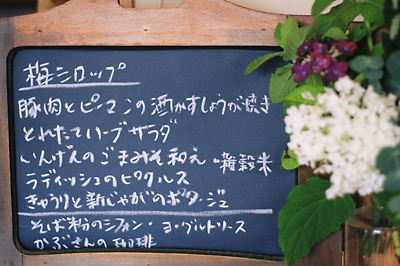 梅シロップ
豚肉とピーマンの酒かすしょうが焼き
とれたてハーブサラダ
いんげんのごまみそ和え・雑穀米
ラディッシュのピクルス
きゅうりと新じゃがのポタージュ
そば粉のシフォン・ヨーグルトソース
かふぇさんの珈琲